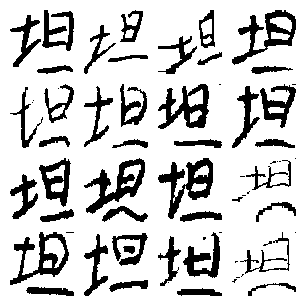 坦坦坦坦
坦坦坦坦
坦坦坦坦
坦坦坦坦